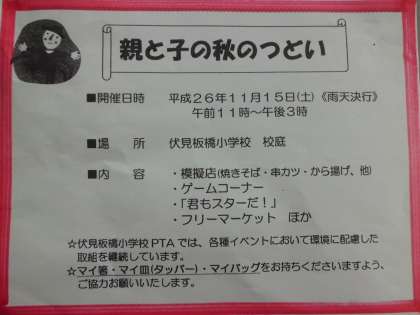 親と子の秋のつどい
■開催日時 平成26年11月15日(土)《雨天決行》
午前11時～午後3時
■場 所 伏見板橋小学校 校庭
■内 容 ・模擬店(焼きそば・串カツ・から揚げ、他)
・ゲームコーナー
・「君もスターだ！」
・フリーマーケット ほか
☆伏見板橋小学校PTAでは、各種イベントにおいて環境に配慮した
取組を継続しています。
☆マイ箸・マイ皿(タッパー)・マイバッグをお持ちくださいますよう、
ご協力お願いいたします。